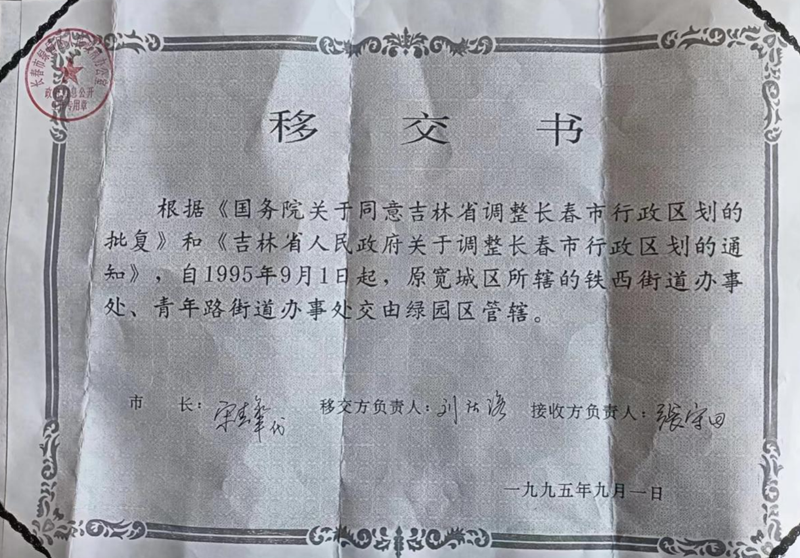 移交书
根据《国务院关于同意吉林省调整长春市行政区划的
批复》和《吉林省人民政府关于调整长春市行政区划的通
知》，自1995年9月1日起，原宽城区所辖的铁西街道办事
处、青年路街道办事处交由绿园区管辖。
市 长： 代 移交方负责人： 接收方负责人：张守田
一九九五年九月一日